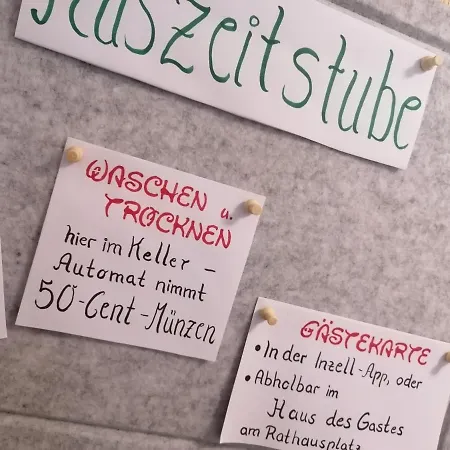 Auszeitstube
WASCHEN u.
TROCKNEN
hier im Keller –
Automat nimmt
50-Cent-Münzen
GÄSTEKARTE
• In der Inzell-App, oder
• Abholbar im
Haus des Gastes
am Rathausplatz